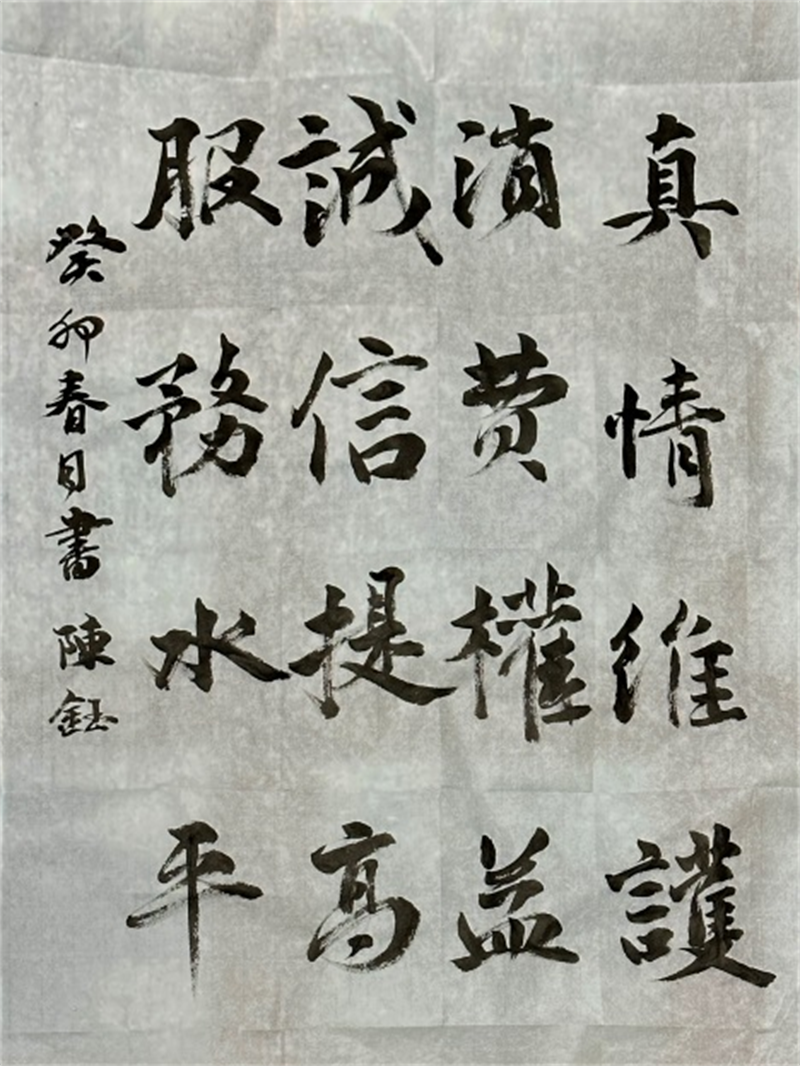 真情维護
消费權益
誠信提高
服務水平
癸卯春月書陳鈺